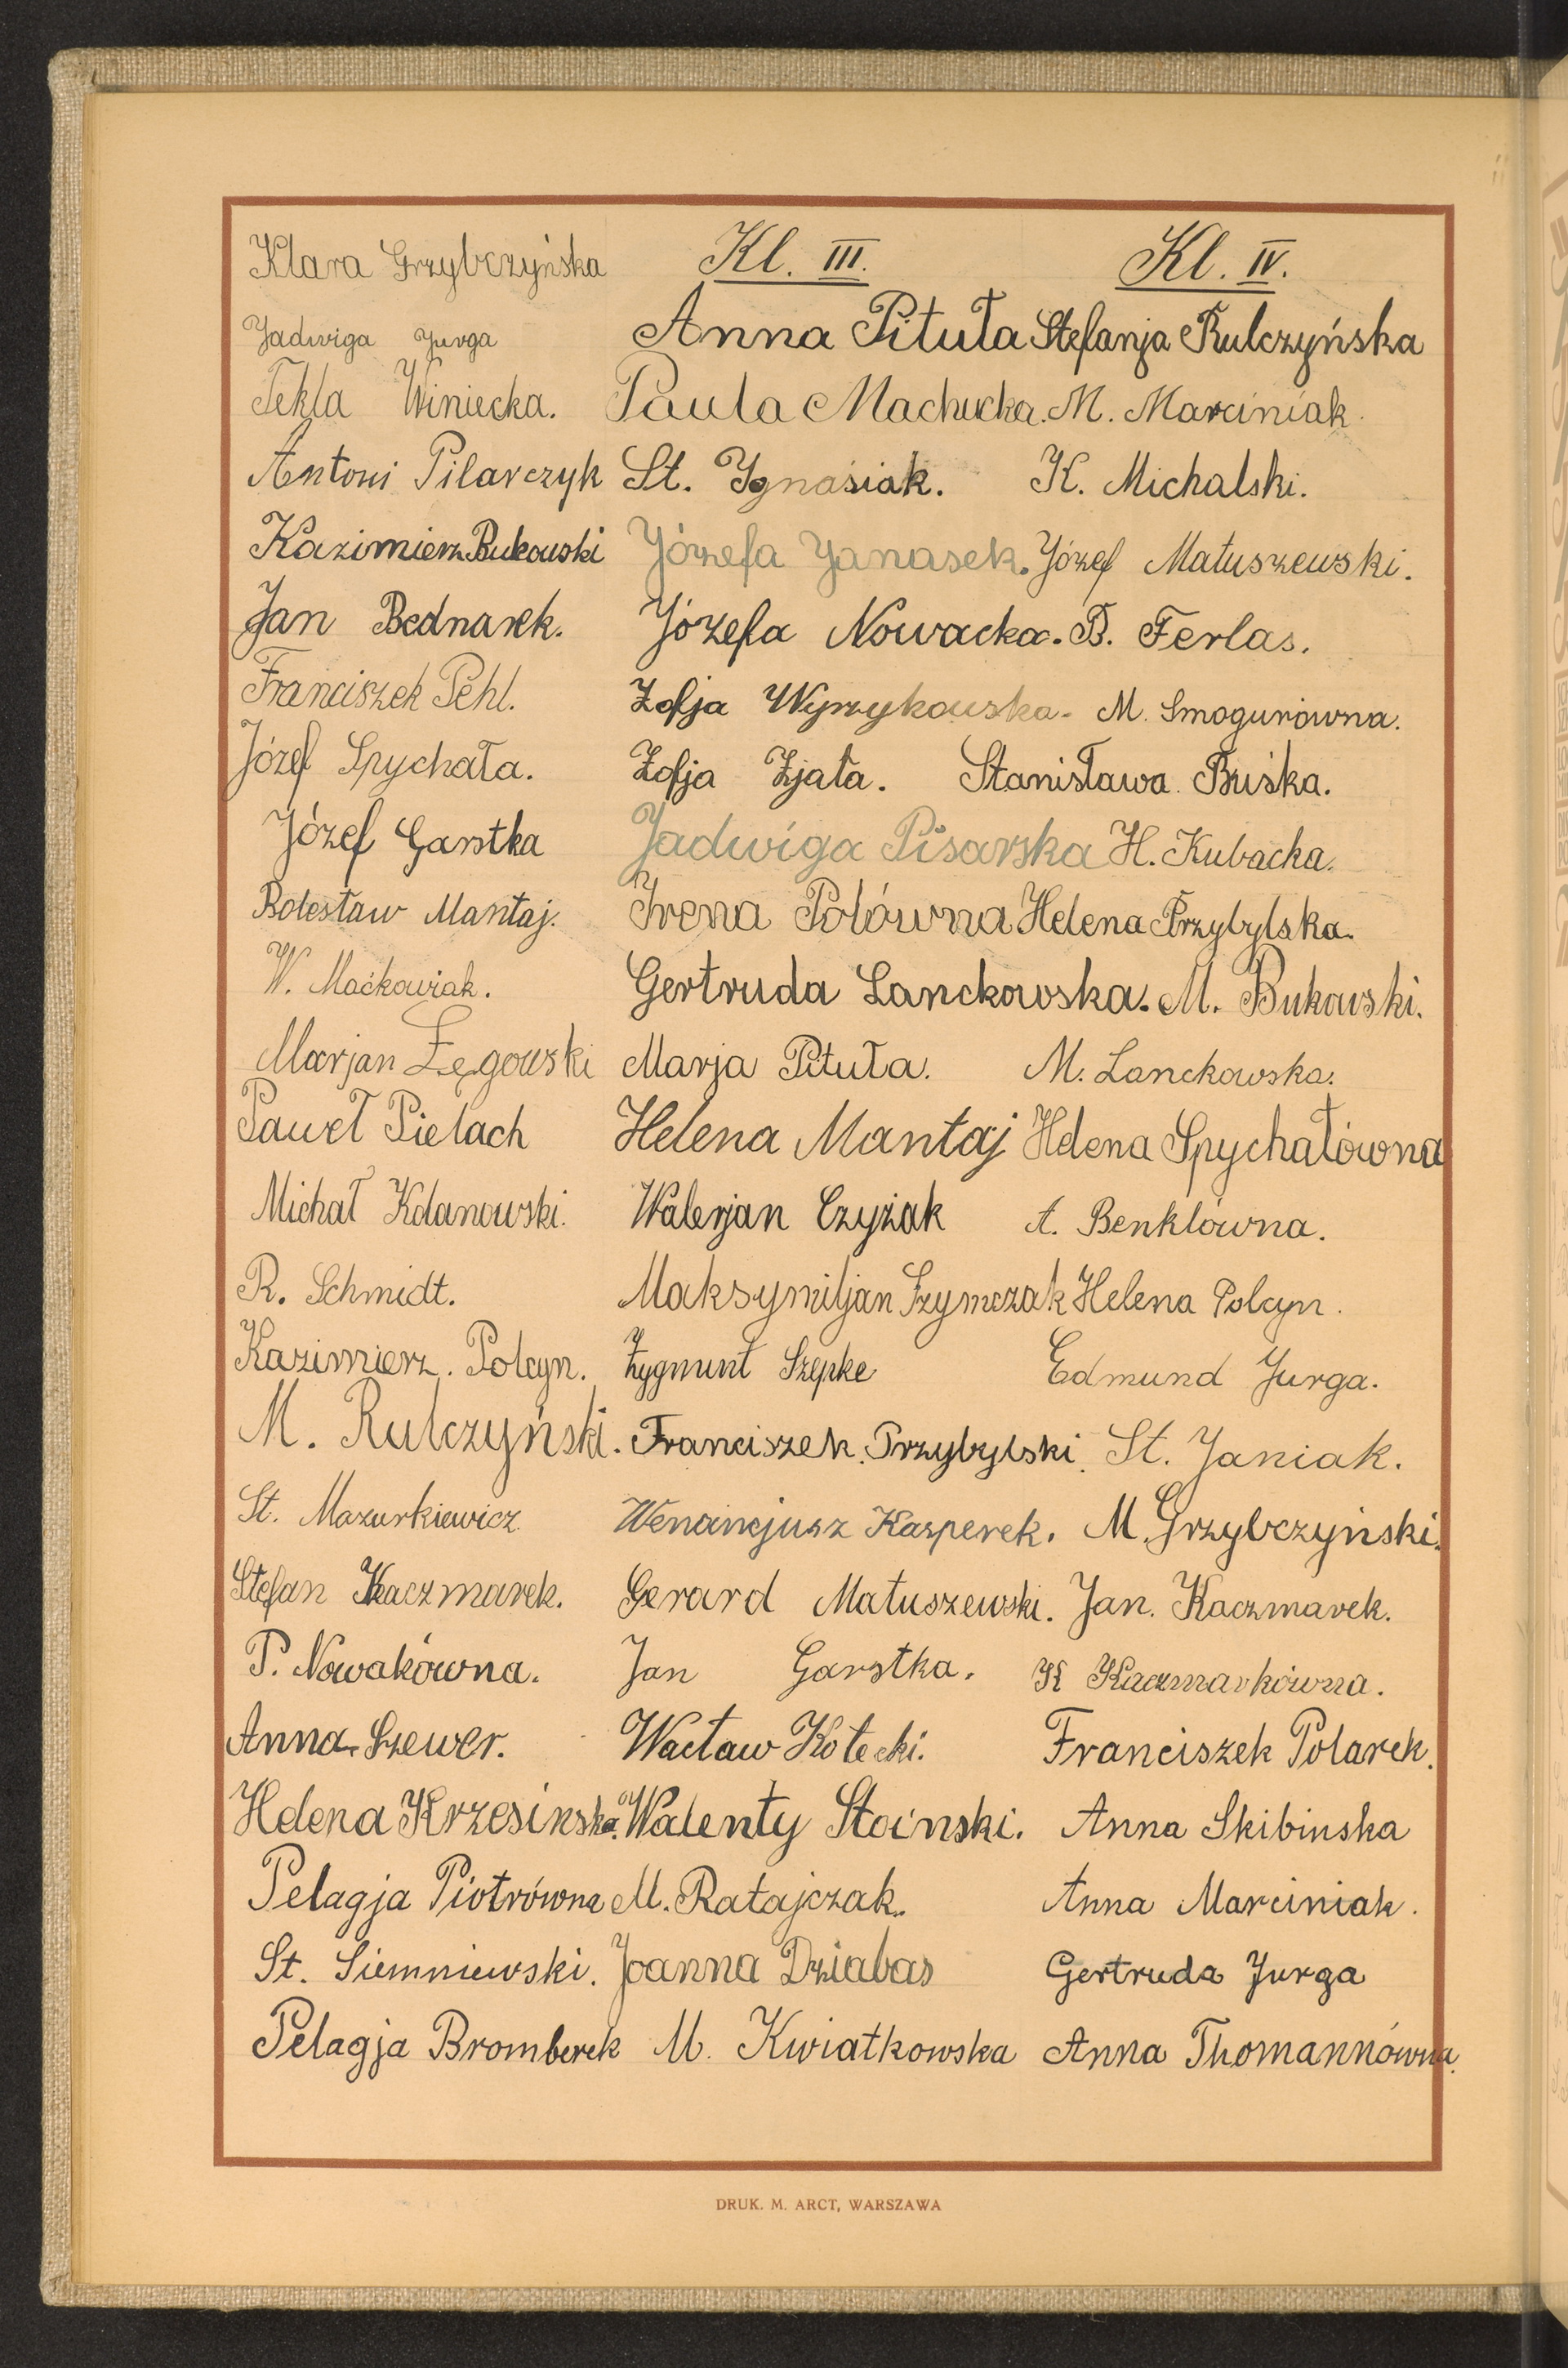 Klara Grzybczyńska
Jadwiga Jurga
Tekla Winiecka.
Antoni Pilarczyk
Kazimierz Bukowski
Jan Bednarek.
Franciszek Pehl.
Józef Spychała.
Józef Garstka
Bolesław Mantaj.
W. Maćkowiak.
Marjan Łęgowski
Paweł Pielach
Michał Kolanowski.
R. Schmidt.
Kazimierz. Polcyn.
M. Rulczyński.
St. Mazurkiewicz
Stefan Kaczmarek.
P. Nowakówna.
Anna Szewer.
Helena Krzesinska.
Pelagja Piotrówna
St. Siemniewski.
Pelagja Bromberek
Kl. III.
Anna Pituła
Paula Machucka.
St. Ignasiak.
Józefa Janasek.
Józefa Nowacka.
Zofja Wyrzykowska.
Zofja Zjała.
Jadwiga Pisarska
Irena Polówna
Gertruda Lanckowska.
Marja Pituła.
Helena Mantaj
Walerjan Czyżak
Maksymiljan Szymczak
Zygmunt Szepke
Franciszek Przybylski.
Wenancjusz Kasperek.
Gerard Matuszewski.
Jan Garstka.
Wacław Kotecki.
Walenty Stoinski.
M. Ratajczak.
Joanna Dziabas
M. Kwiatkowska
Kl. IV.
Stefanja Rulczyńska
M. Marciniak.
K. Michalski.
Józef Matuszewski.
B. Ferlas.
M. Smogurówna.
Stanisława Buśka.
H. Kubacka.
Helena Przybylska.
M. Bukowski.
M. Lanckowska.
Helena Spychałówna
A. Benklówna.
Helena Polcyn.
Edmund Jurga.
St. Janiak.
M. Grzybczyński.
Jan. Kaczmarek.
K Kaczmarkówna.
Franciszek Polarek.
Anna Skibinska
Anna Marciniak.
Gertruda Jurga
Anna Thomannówna.
DRUK. M. ARCT, WARSZAWA